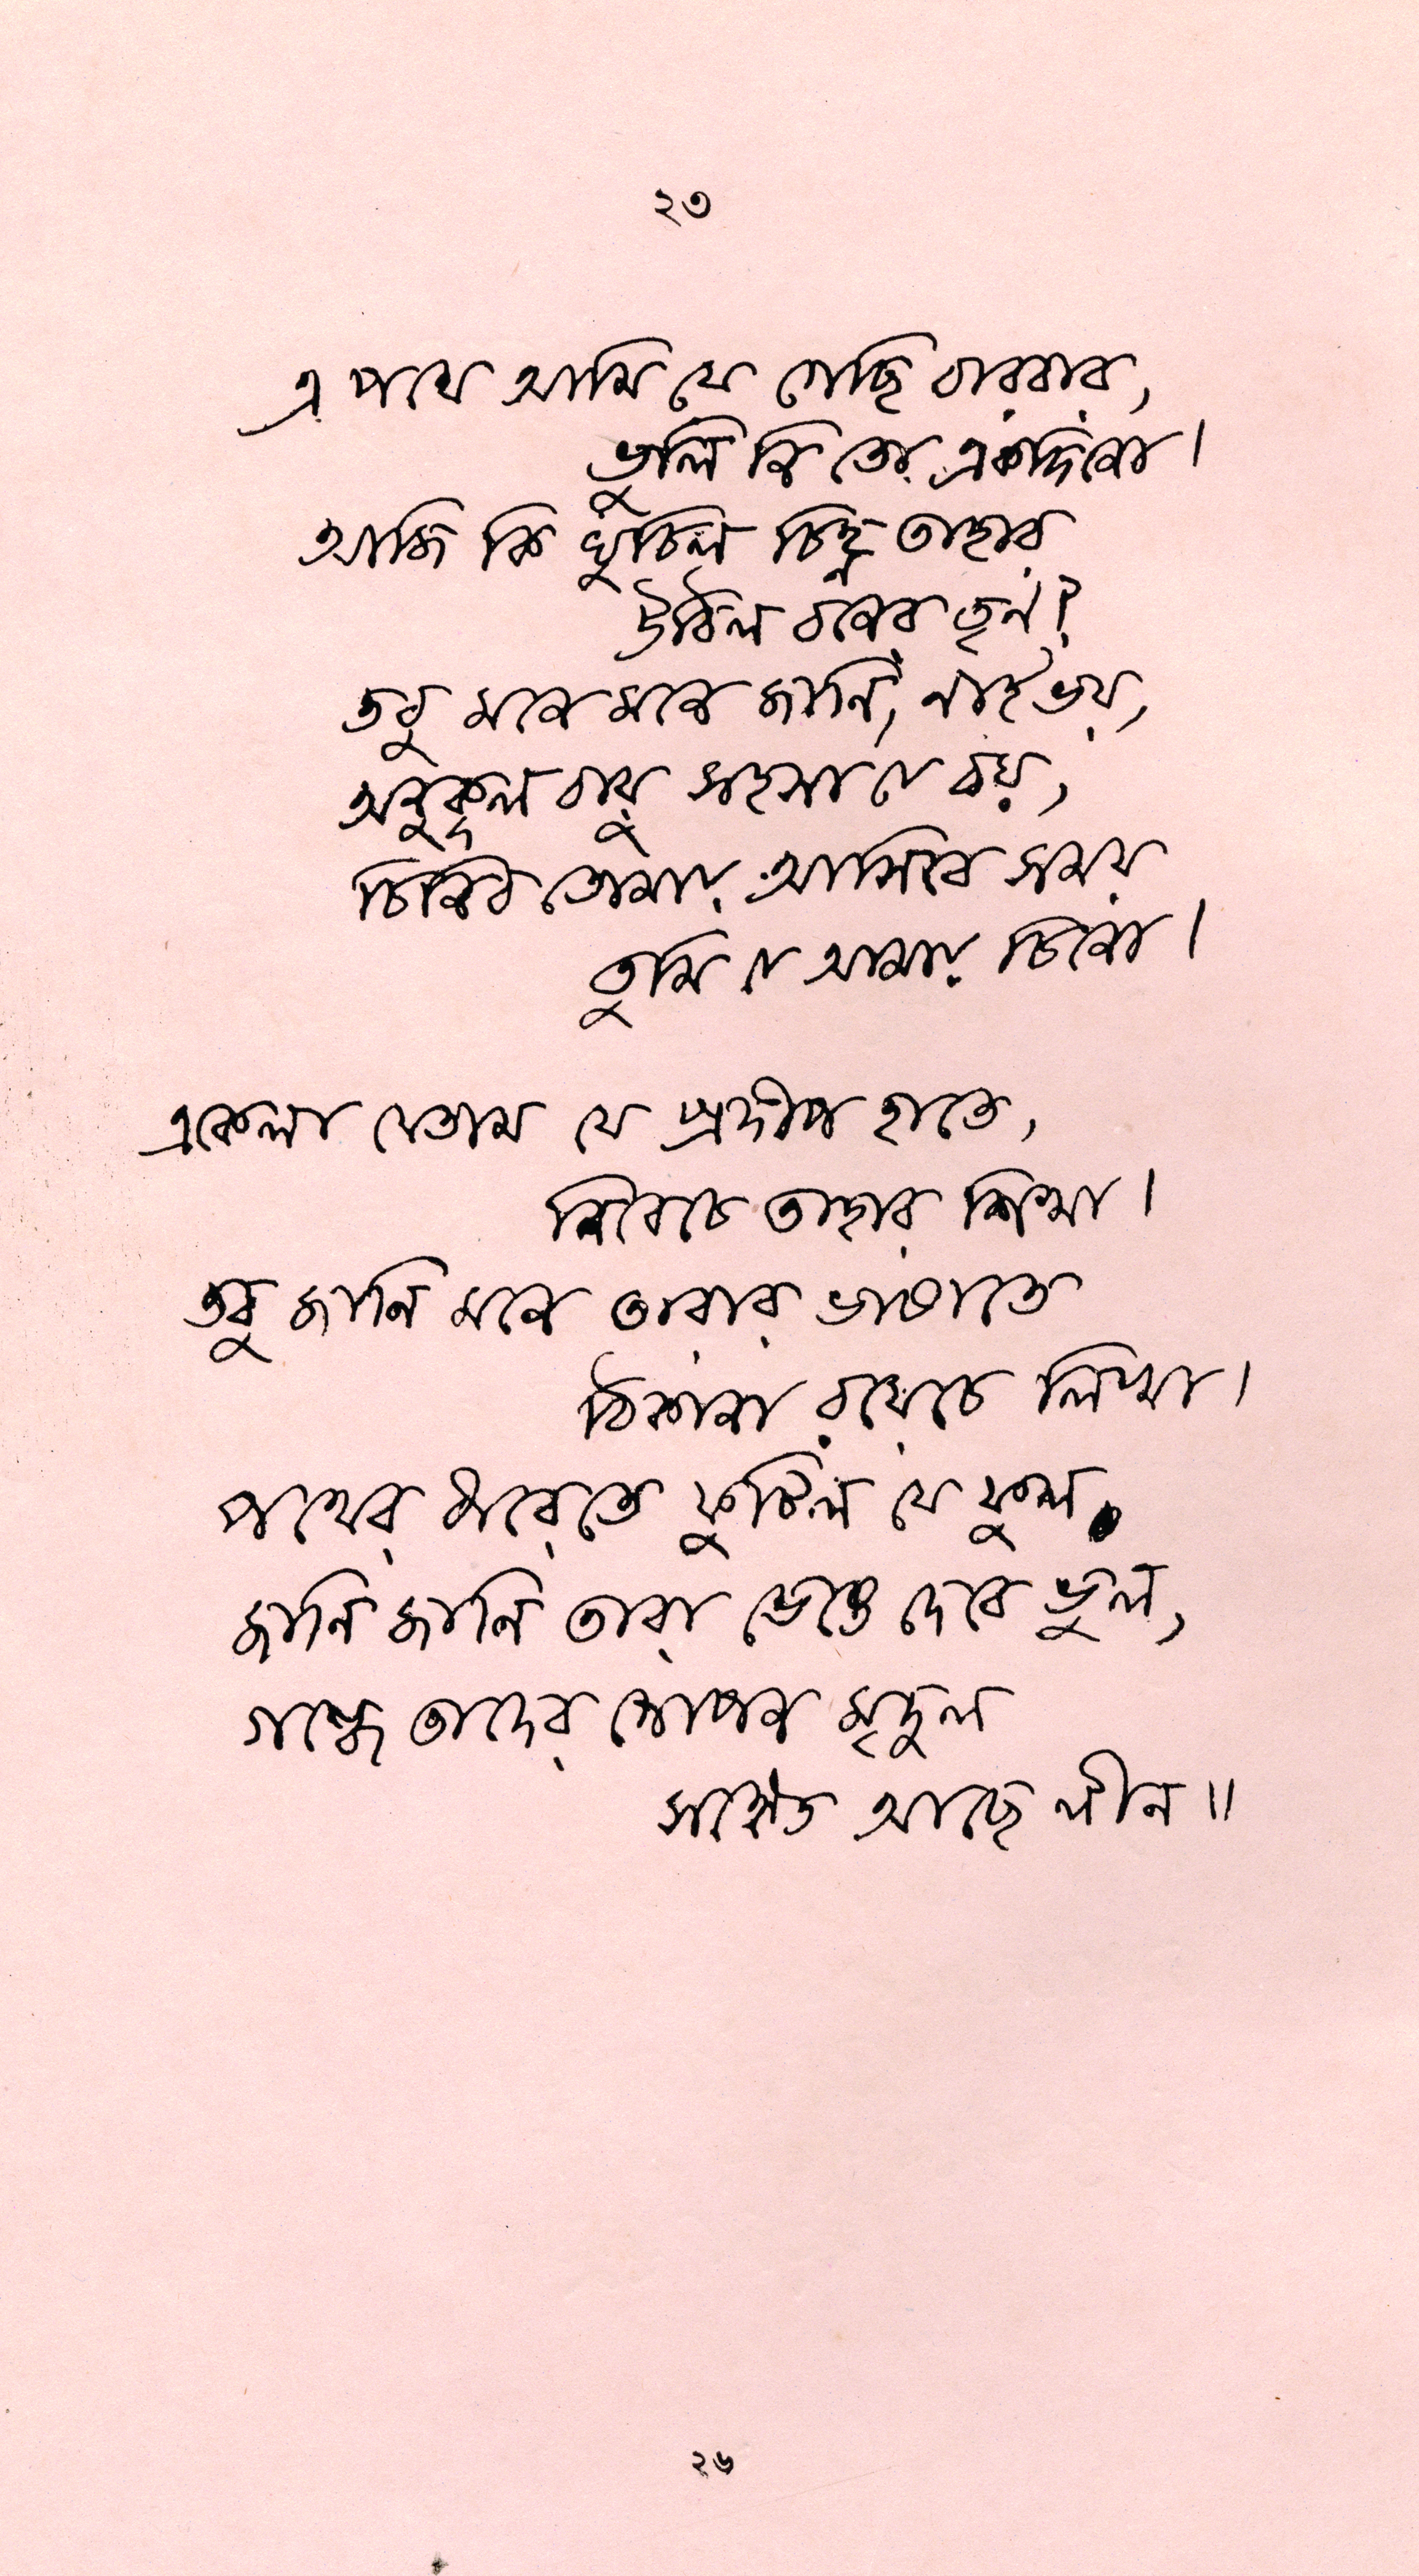 ২৩
এ পথে আমি যে গেছি বারবার,
ভুলিনি তো একদিনো।
আজি কি ঘুচিল চিহ্ন তাহার
উঠিল বনের তৃণ?
তবু মনে মনে জানি, নাই ভয়,
অনুকূল বায়ু সহসা যে বয়,
চিনিব তোমায় আসিবে সময়
তুমি যে আমায় চিনো।
একেলা যেতাম যে প্রদীপ হাতে,
নিবেচে তাহার শিখা।
তবু জানি মনে তারার ভাষাতে
ঠিকানা রয়েচে লিখা।
পথের ধারেতে ফুটিল যে ফুল
জানি জানি তারা ভেঙে দেবে ভুল,
গন্ধে তাদের গোপন মৃদুল
সঙ্কেত আছে লীন॥
২৬